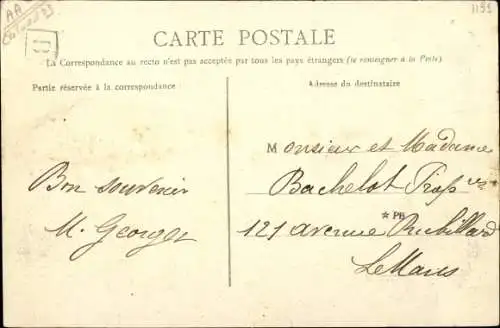 AA
1151
CARTE POSTALE
La Correspondance au recto n'est pas acceptée par tous les pays étrangers (se renseigner à la Poste)
Partie réservée à la correspondance
Adresse du destinataire
Bon souvenir
M. Georges
Monsieur et Madame
Bachelot Prof
*PB
121 avenue Rubillard
Le Mans